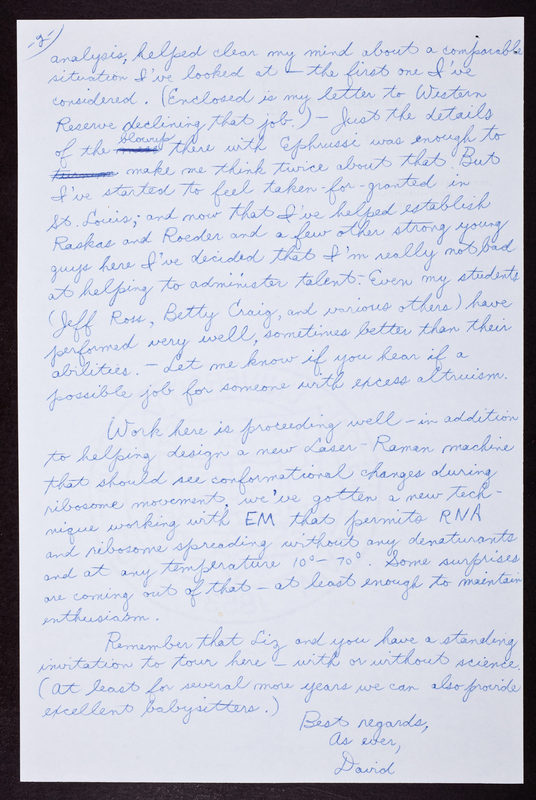 -2-
analysis, helped clear my mind about a comparable
situation I've looked at — the first one I've
considered. (Enclosed is my letter to Western
Reserve declining that job.) — Just the details
of the blowup there with Ephrussi was enough to
make me think twice about that. But
I've started to feel taken-for-granted in
St. Louis; and now that I've helped establish
Raskas and Roeder and a few other strong young
guys here I've decided that I'm really not bad
at helping to administer talent. Even my students
(Jeff Ross, Betty Craig, and various others) have
performed very well, sometimes better than their
abilities. — Let me know if you hear if a
possible job for someone with excess altruism.
Work here is proceeding well — in addition
to helping design a new Laser-Raman machine
that should see conformational changes during
ribosome movement, we've gotten a new tech-
nique working with EM that permits RNA
and ribosome spreading without any denaturants
and at any temperature 10°-70°. Some surprises
are coming out of that — at least enough to maintain
enthusiasm.
Remember that Liz and you have a standing
invitation to tour here — with or without science.
(At least for several more years we can also provide
excellent babysitters.)
Best regards,
As ever,
David